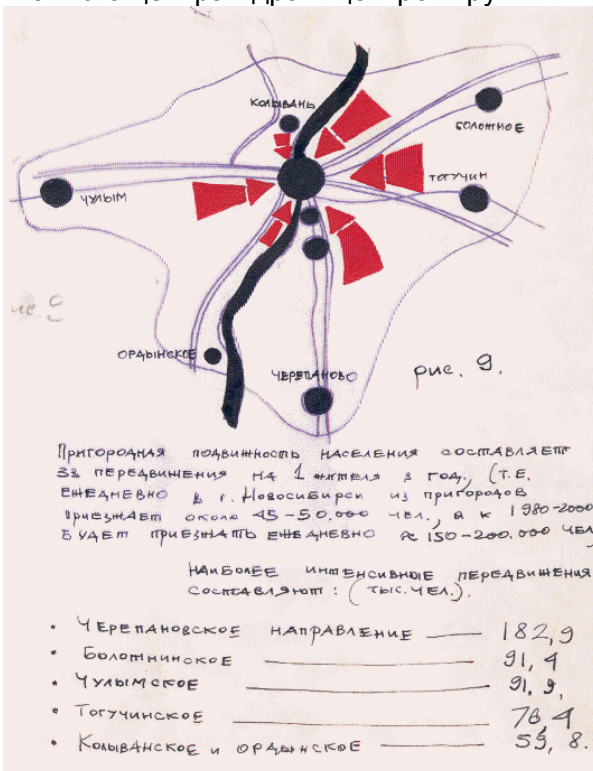 КОЛЫВАНЬ
БОЛОТНОЕ
ТОГУЧИН
ЧУЛЫМ
ОРДЫНСКОЕ
ЧЕРЕПАНОВО
рис. 9.
ПРИГОРОДНАЯ ПОДВИЖНОСТЬ НАСЕЛЕНИЯ СОСТАВЛЯЕТ
33 ПЕРЕДВИЖЕНИЯ НА 1 ЖИТЕЛЯ В ГОД, (Т.Е.
ЕЖЕДНЕВНО В г. НОВОСИБИРСК ИЗ ПРИГОРОДОВ
ПРИЕЗЖАЕТ ОКОЛО 45-50.000 ЧЕЛ., А К 1980-2000
БУДЕТ ПРИЕЗЖАТЬ ЕЖЕДНЕВНО ≈ 150-200.000 ЧЕЛ
НАИБОЛЕЕ ИНТЕНСИВНЫЕ ПЕРЕДВИЖЕНИЯ
СОСТАВЛЯЮТ: (ТЫС. ЧЕЛ.).
• ЧЕРЕПАНОВСКОЕ НАПРАВЛЕНИЕ — 182,9
• БОЛОТНИНСКОЕ — 91,4
• ЧУЛЫМСКОЕ — 91.9.
• ТОГУЧИНСКОЕ — 76,4
• КОЛЫВАНСКОЕ И ОРДЫНСКОЕ — 59,8.